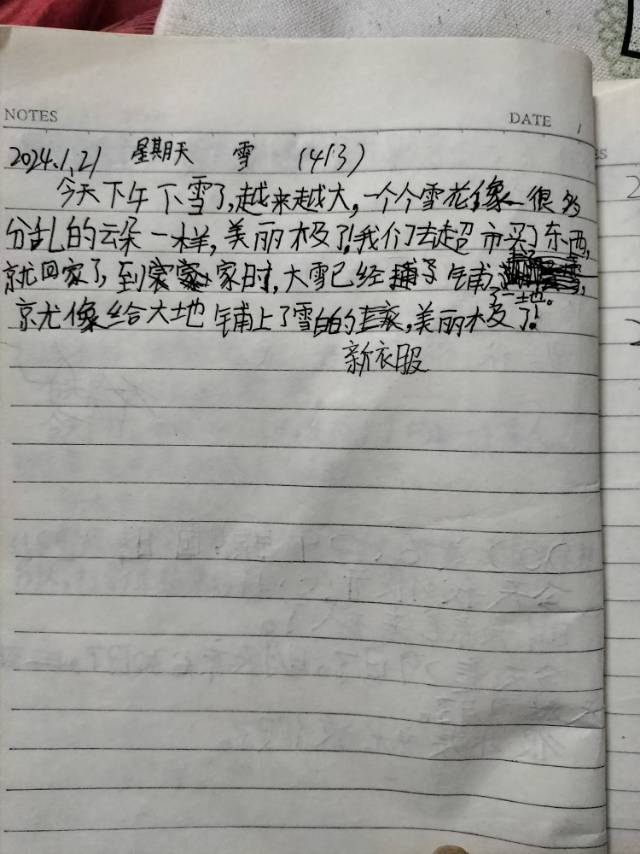 NOTES DATE
2024.1.21 星期天 雪 (413)
今天下午下雪了,越来越大,一个个雪花像一很多
分乱的云朵一样,美丽极了!我们去超市买了东西,
就回家了,到家时,大雪已经铺
了一地。
就像给大地铺上了雪白的,美丽极了!
新衣服